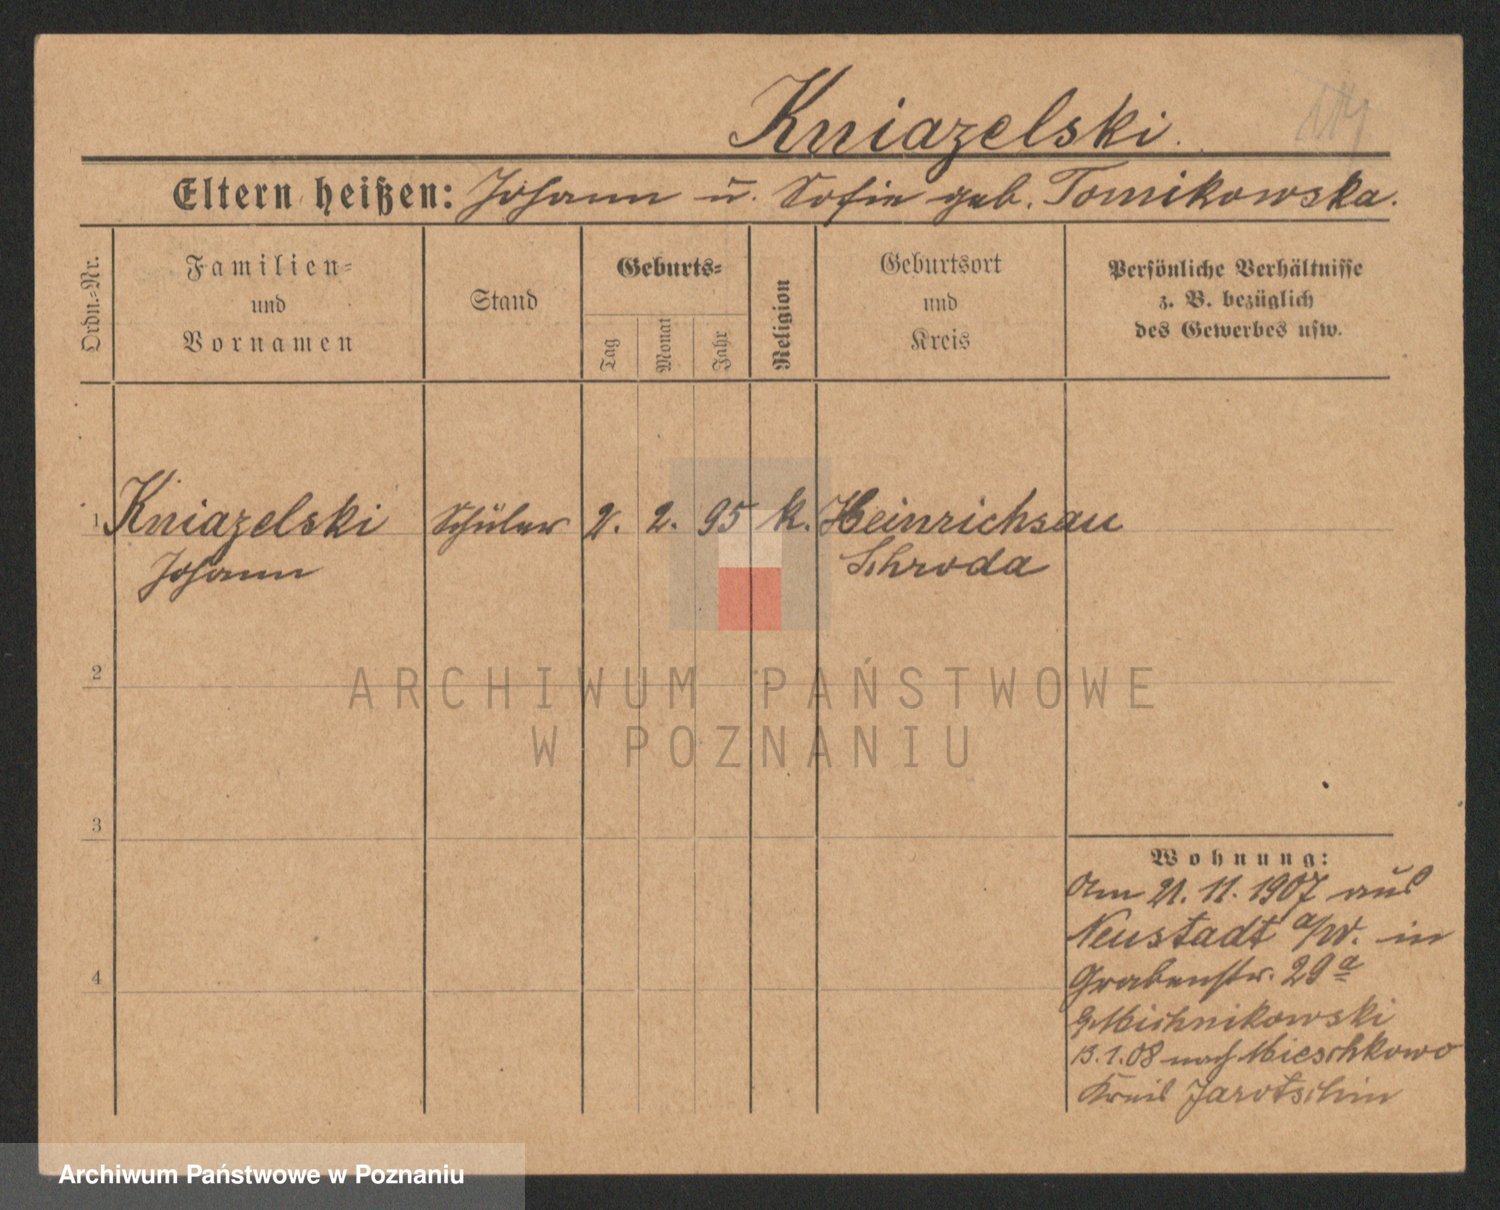 Kniazelski.
Eltern heißen: Johann u. Sofie geb. Tomikowska.
Ordn.-Nr.
Familien-
und
Vornamen
Stand
Geburts-
Tag
Monat
Jahr
Religion
Geburtsort
und
Kreis
Persönliche Verhältnisse
z. B. bezüglich
des Gewerbes usw.
1 Kniazelski Schüler 2. 2. 95 k. Heinrichsau
Johann Schroda
2
ARCHIWUM PAŃSTWOWE
W POZNANIU
3
Wohnung:
Am 21. 11. 1907 aus
Neustadt a/W. in
Grabenstr. 29a
Michnikowski
13.1.08 nach Mieschkowo
Kreis Jarotschin
4
Archiwum Państwowe w Poznaniu